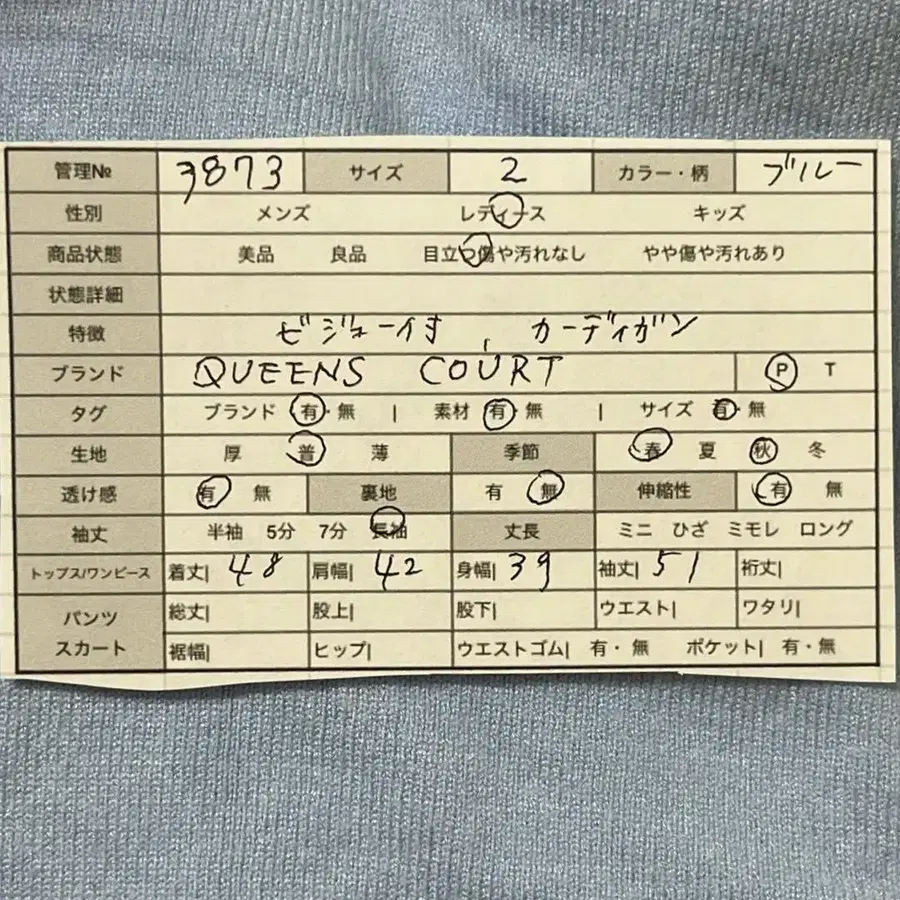 管理№ 3873 サイズ 2 カラー・柄 ブルー
性別 メンズ レディース キッズ
商品状態 美品 良品 目立つ傷や汚れなし やや傷や汚れあり
状態詳細
特徴 ビジュー付 、カーディガン
ブランド QUEENS COURT P T
タグ ブランド 有・無 | 素材 有・無 | サイズ 有・無
生地 厚 普 薄 季節 春 夏 秋 冬
透け感 有 無 裏地 有 無 伸縮性 有 無
袖丈 半袖 5分 7分 長袖 丈長 ミニ ひざ ミモレ ロング
トップス/ワンピース 着丈| 48 肩幅| 42 身幅| 39 袖丈| 51 裄丈|
パンツ 総丈| 股上| 股下| ウエスト| ワタリ|
スカート 裾幅| ヒップ| ウエストゴム| 有・無 ポケット| 有・無